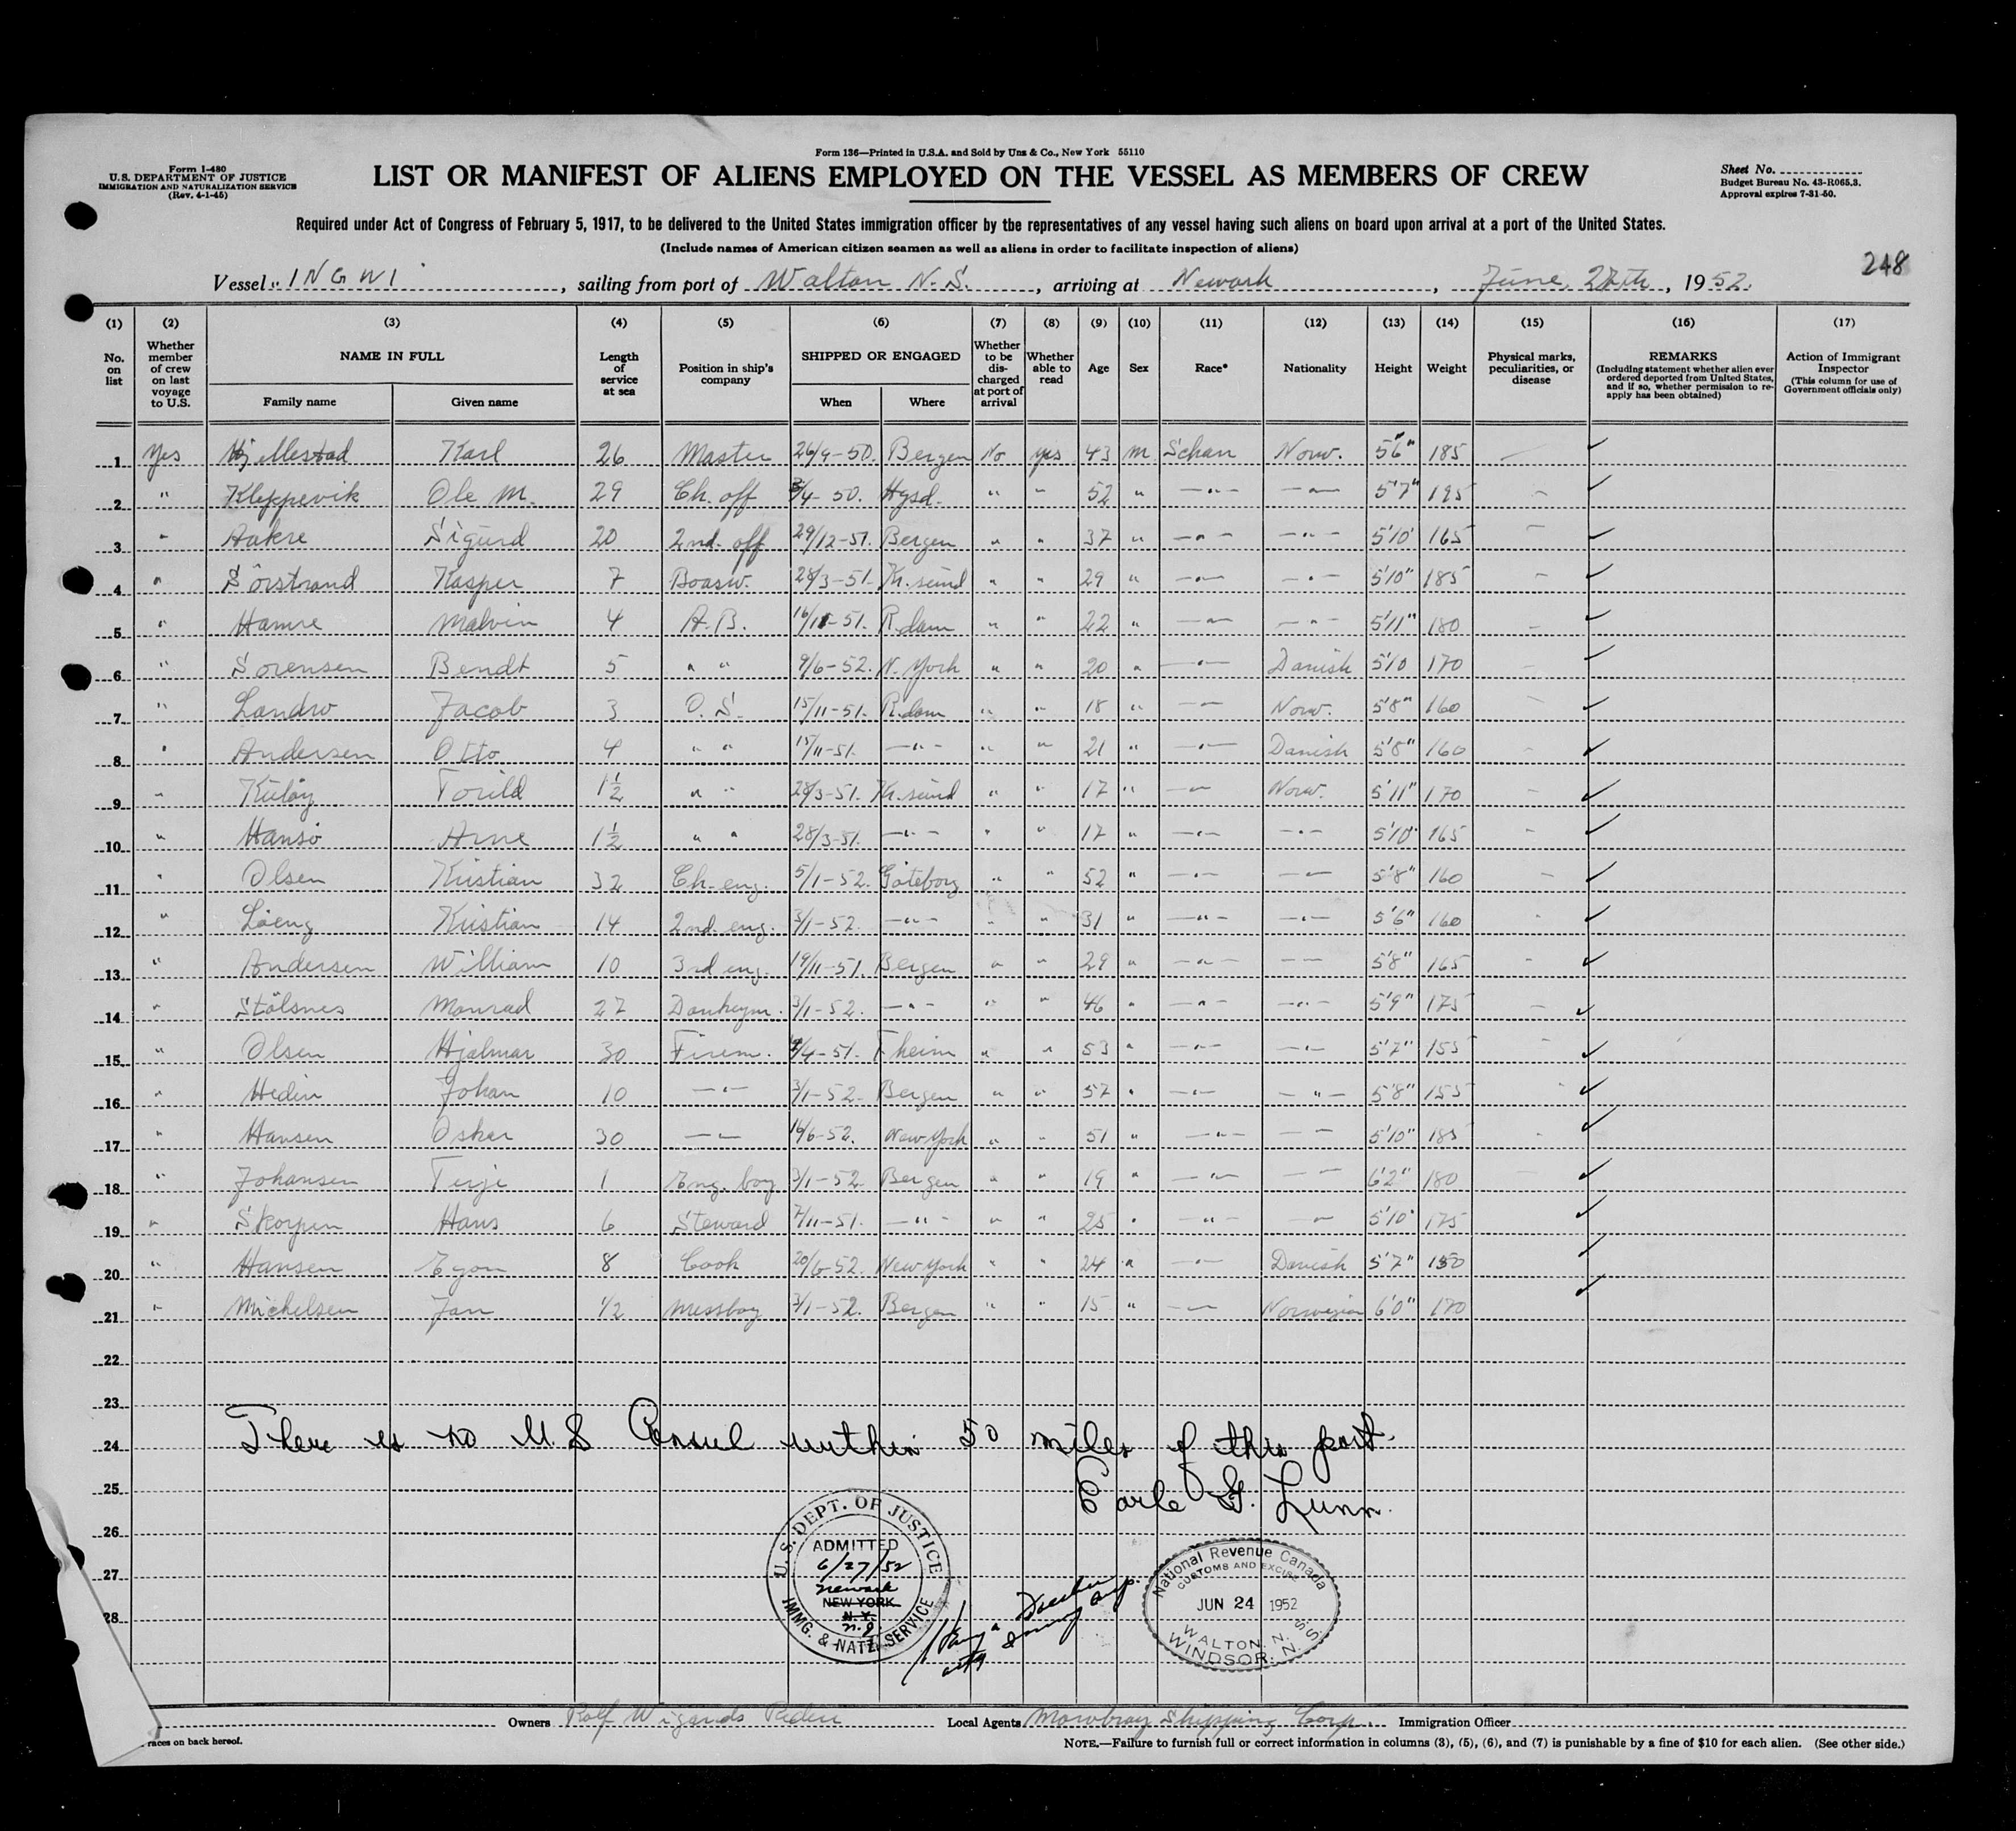 Form 136—Printed in U.S.A. and Sold by Uns & Co., New York 55110
Form I-480
U.S. DEPARTMENT OF JUSTICE
IMMIGRATION AND NATURALIZATION SERVICE
(Rev. 4-1-45)
LIST OR MANIFEST OF ALIENS EMPLOYED ON THE VESSEL AS MEMBERS OF CREW
Sheet No.
Budget Bureau No. 43-R065.3.
Approval expires 7-31-50.
Required under Act of Congress of February 5, 1917, to be delivered to the United States immigration officer by the representatives of any vessel having such aliens on board upon arrival at a port of the United States.
(Include names of American citizen seamen as well as aliens in order to facilitate inspection of aliens)
248
Vessel "INGWI", sailing from port of Walton N.S., arriving at Newark, June 27th, 1952.
(1) (2) (3) (4) (5) (6) (7) (8) (9) (10) (11) (12) (13) (14) (15) (16) (17)
No. on list
Whether member of crew on last voyage to U.S.
NAME IN FULL
Family name Given name
Length of service at sea
Position in ship's company
SHIPPED OR ENGAGED
When Where
Whether to be discharged at port of arrival
Whether able to read
Age Sex Race* Nationality Height Weight
Physical marks, peculiarities, or disease
REMARKS
(Including statement whether alien ever ordered deported from United States, and if so, whether permission to reapply has been obtained)
Action of Immigrant Inspector
(This column for use of Government officials only)
1 Yes Hjellestad Karl 26 Master 26/9-50. Bergen No yes 43 m Schan Norw. 5'6" 185
2 " Kleppevik Ole M. 29 Ch. off 3/4-50. Hgsd. " " 52 " -"- -"- 5'7" 195
3 " Aakre Sigurd 20 2nd. off 29/12-51. Bergen " " 37 " -"- -"- 5'10" 165
4 " Sörstrand Kasper 7 Boasw. 28/3-51. Kr.sund " " 29 " -"- -"- 5'10" 185
5 " Hamre Malvin 4 A.B. 16/11-51. R.dam " " 22 " -"- -"- 5'11" 180
6 " Sorensen Bendt 5 " " 9/6-52. N.York " " 20 " -"- Danish 5'10 170
7 " Landro Jacob 3 O.S. 15/11-51. R.dam " " 18 " -"- Norw. 5'8" 160
8 " Andersen Otto 4 " " 15/11-51. -"- " " 21 " -"- Danish 5'8" 160
9 " Kuløy Torild 1½ " " 28/3-51. Kr.sund " " 17 " -"- Norw. 5'11" 170
10 " Hansö Arne 1½ " " 28/3-51. -"- " " 17 " -"- -"- 5'10" 165
11 " Olsen Kristian 32 Ch-eng. 5/1-52. Göteborg " " 52 " -"- -"- 5'8" 160
12 " Löeng Kristian 14 2nd. eng. 3/1-52. -"- " " 31 " -"- -"- 5'6" 160
13 " Andersen William 10 3rd eng. 19/11-51. Bergen " " 29 " -"- -"- 5'8" 165
14 " Stölsnes Monrad 27 Donkeym. 3/1-52. -"- " " 46 " -"- -"- 5'9" 175
15 " Olsen Hjalmar 30 Firem. 9/4-51. T.heim " " 53 " -"- -"- 5'7" 155
16 " Hedin Johan 10 -"- 3/1-52. Bergen " " 57 " -"- -"- 5'8" 155
17 " Hansen Oskar 30 -"- 16/6-52. New York " " 51 " -"- -"- 5'10" 185
18 " Johansen Terje 1 Eng. boy 3/1-52. Bergen " " 19 " -"- -"- 6'2" 180
19 " Skorpen Hans 6 Steward 7/11-51. -"- " " 25 " -"- -"- 5'10" 175
20 " Hansen Egon 8 Cook 20/6-52. New York " " 24 " -"- Danish 5'7" 150
21 " Michelsen Jan 1/2 Messboy 3/1-52. Bergen " " 15 " -"- Norwegian 6'0" 170
22
23
24 There is no U S Consul within 50 miles of this port.
25 Earle G. Lunn.
26
27
28
U.S. DEPT. OF JUSTICE
ADMITTED
6/27/52
Newark
NEW YORK
N.Y.
N.J.
IMMG. & NATZ. SERVICE
National Revenue Canada
CUSTOMS AND EXCISE
JUN 24 1952
WALTON, N. S.
WINDSOR, N. S.
Owners Rolf Wigands Rederi Local Agents Mowbray Shipping Corp. Immigration Officer
races on back hereof.
NOTE.—Failure to furnish full or correct information in columns (3), (5), (6), and (7) is punishable by a fine of $10 for each alien. (See other side.)